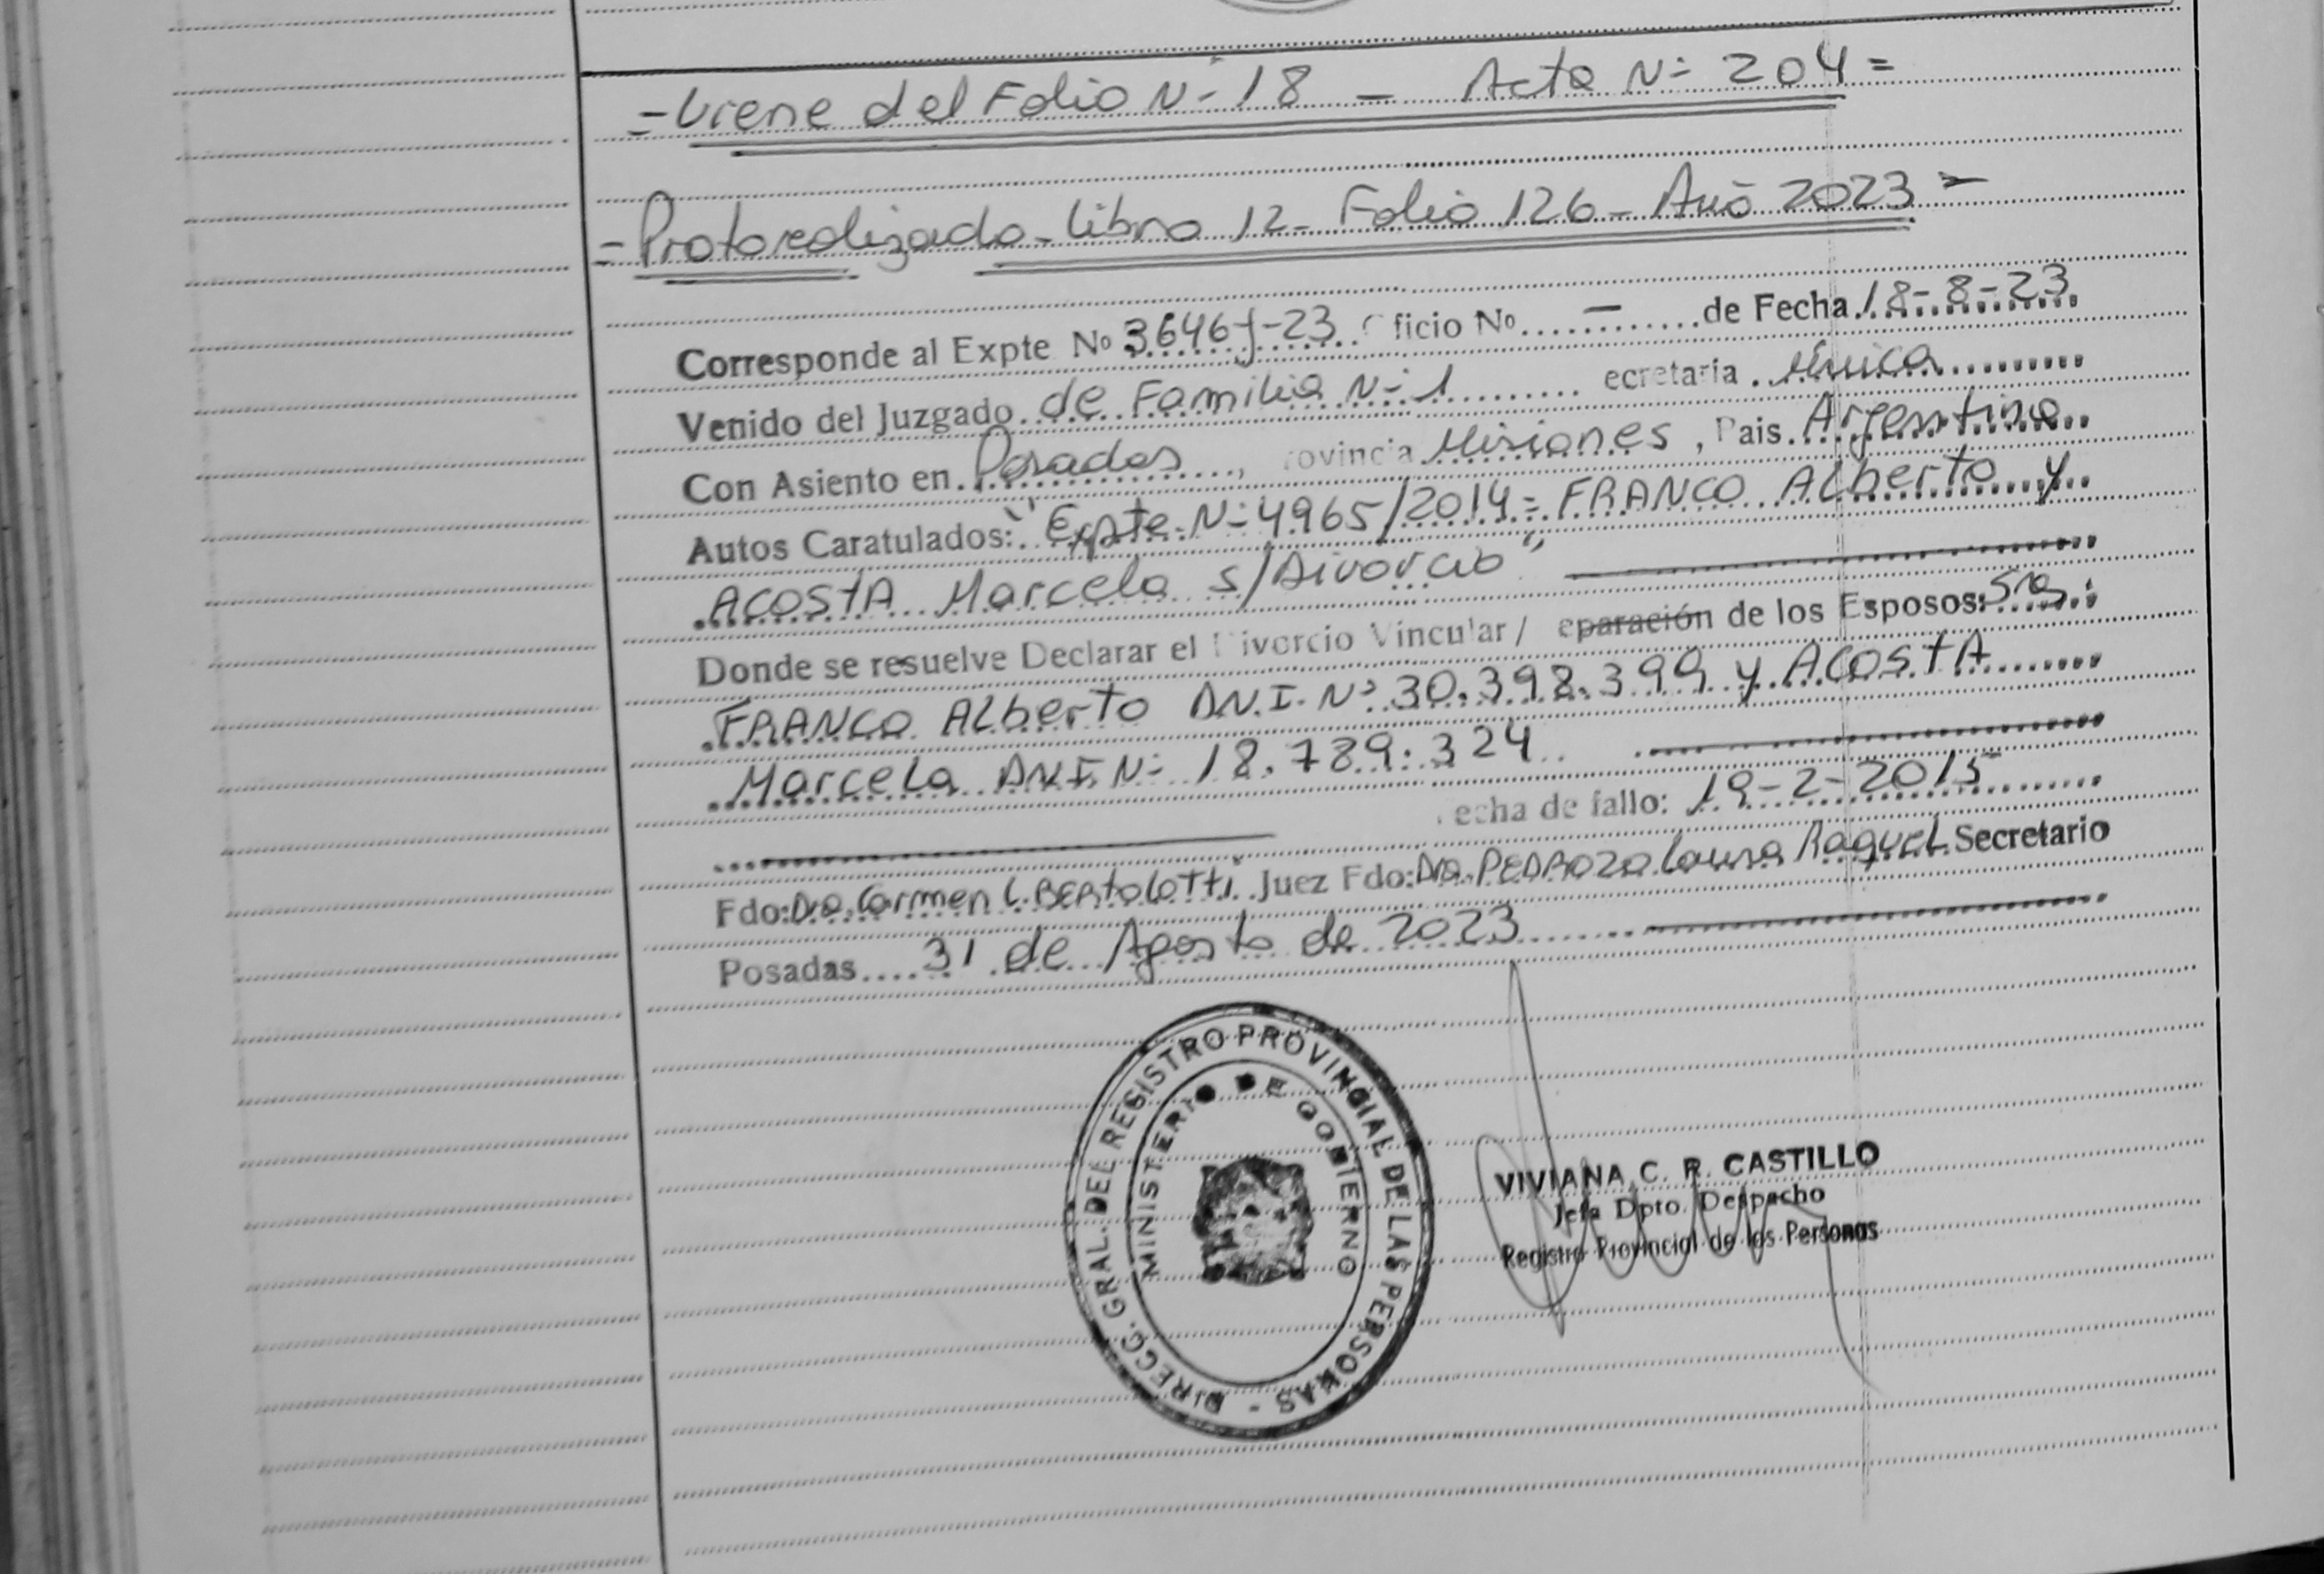 =Viene del Folio N- 18 - Acta N- 204=
=Protocolizado-Libro 12- Folio 126- Año 2023=
Corresponde al Expte No 3646-J-23. ficio No....-.......de Fecha 18-8-23
Venido del Juzgado de Familia N- 1 ......... ecretaria . Única.........
Con Asiento en. Posadas...., rovincia Misiones, Pais. Argentina..
Autos Caratulados: "Expte. N- 4965/2014= FRANCO Alberto y
ACOSTA Marcela s/Divorcio"
Donde se resuelve Declarar el Divorcio Vincular / eparación de los Esposos: Sres:
FRANCO Alberto D.N.I. Nº 30.398.399 y ACOSTA
Marcela D.N.I. N- 18.789.324
echa de fallo: 19-2-2015
Fdo: Dra. Carmen L. BERtoLOTTi. Juez Fdo: Dra. PEDROZO Laura Raquel Secretario
Posadas .... 31 de Agosto de 2023
DIRECC. GRAL. DEL REGISTRO PROVINCIAL DE LAS PERSONAS -
MINISTERIO DE GOBIERNO
VIVIANA C. R. CASTILLO
Jefa Dpto. Despacho
Registro Provincial de las Personas